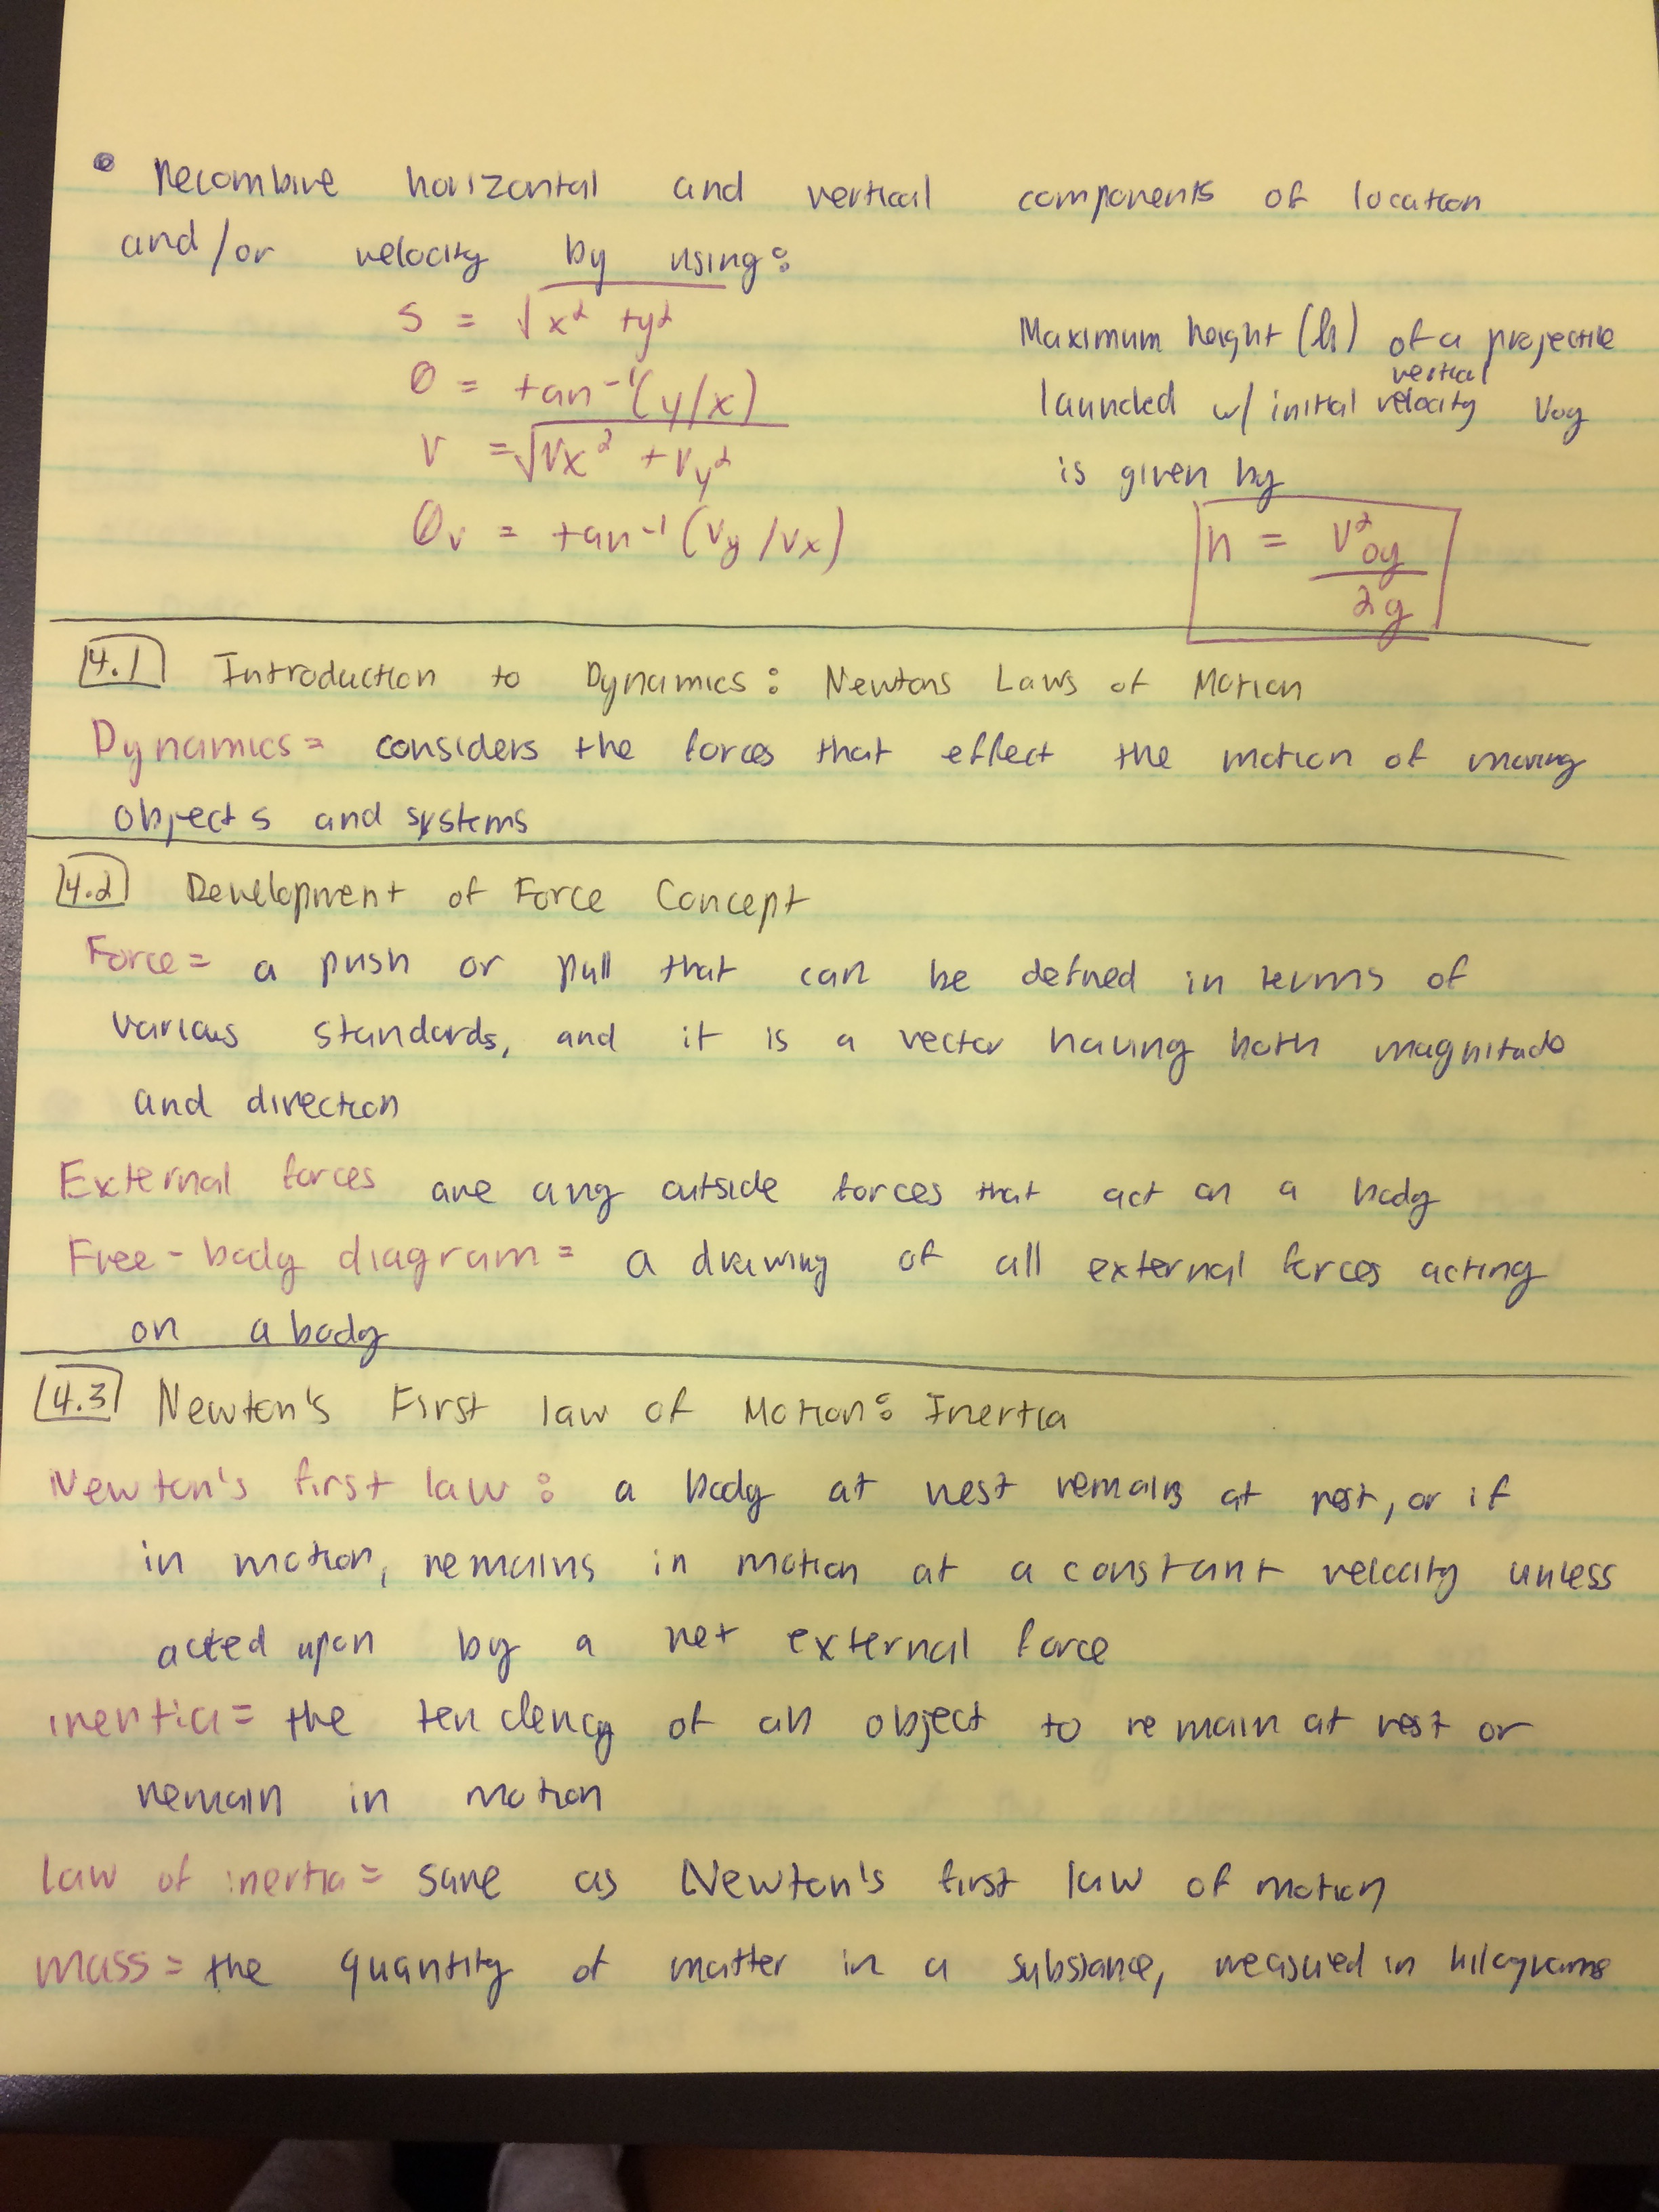 • Recombine horizontal and vertical components of location
and/or velocity by using:
s = √x² + y²
θ = tan⁻¹(y/x)
v = √vx² + vy²
θv = tan⁻¹(vy/vx)
Maximum height (h) of a projectile
launched w/ initial vertical velocity voy
is given by
h = v²oy / 2g
4.1 Introduction to Dynamics: Newtons Laws of Motion
Dynamics = considers the forces that effect the motion of moving
objects and systems
4.2 Development of Force Concept
Force = a push or pull that can be defined in terms of
various standards, and it is a vector having both magnitude
and direction
External forces are any outside forces that act on a body
Free-body diagram = a drawing of all external forces acting
on a body
4.3 Newton's First law of Motion: Inertia
Newton's first law: a body at rest remains at rest, or if
in motion, remains in motion at a constant velocity unless
acted upon by a net external force
inertia = the tendency of an object to remain at rest or
remain in motion
law of inertia = same as Newton's first law of motion
mass = the quantity of matter in a substance, measured in kilograms